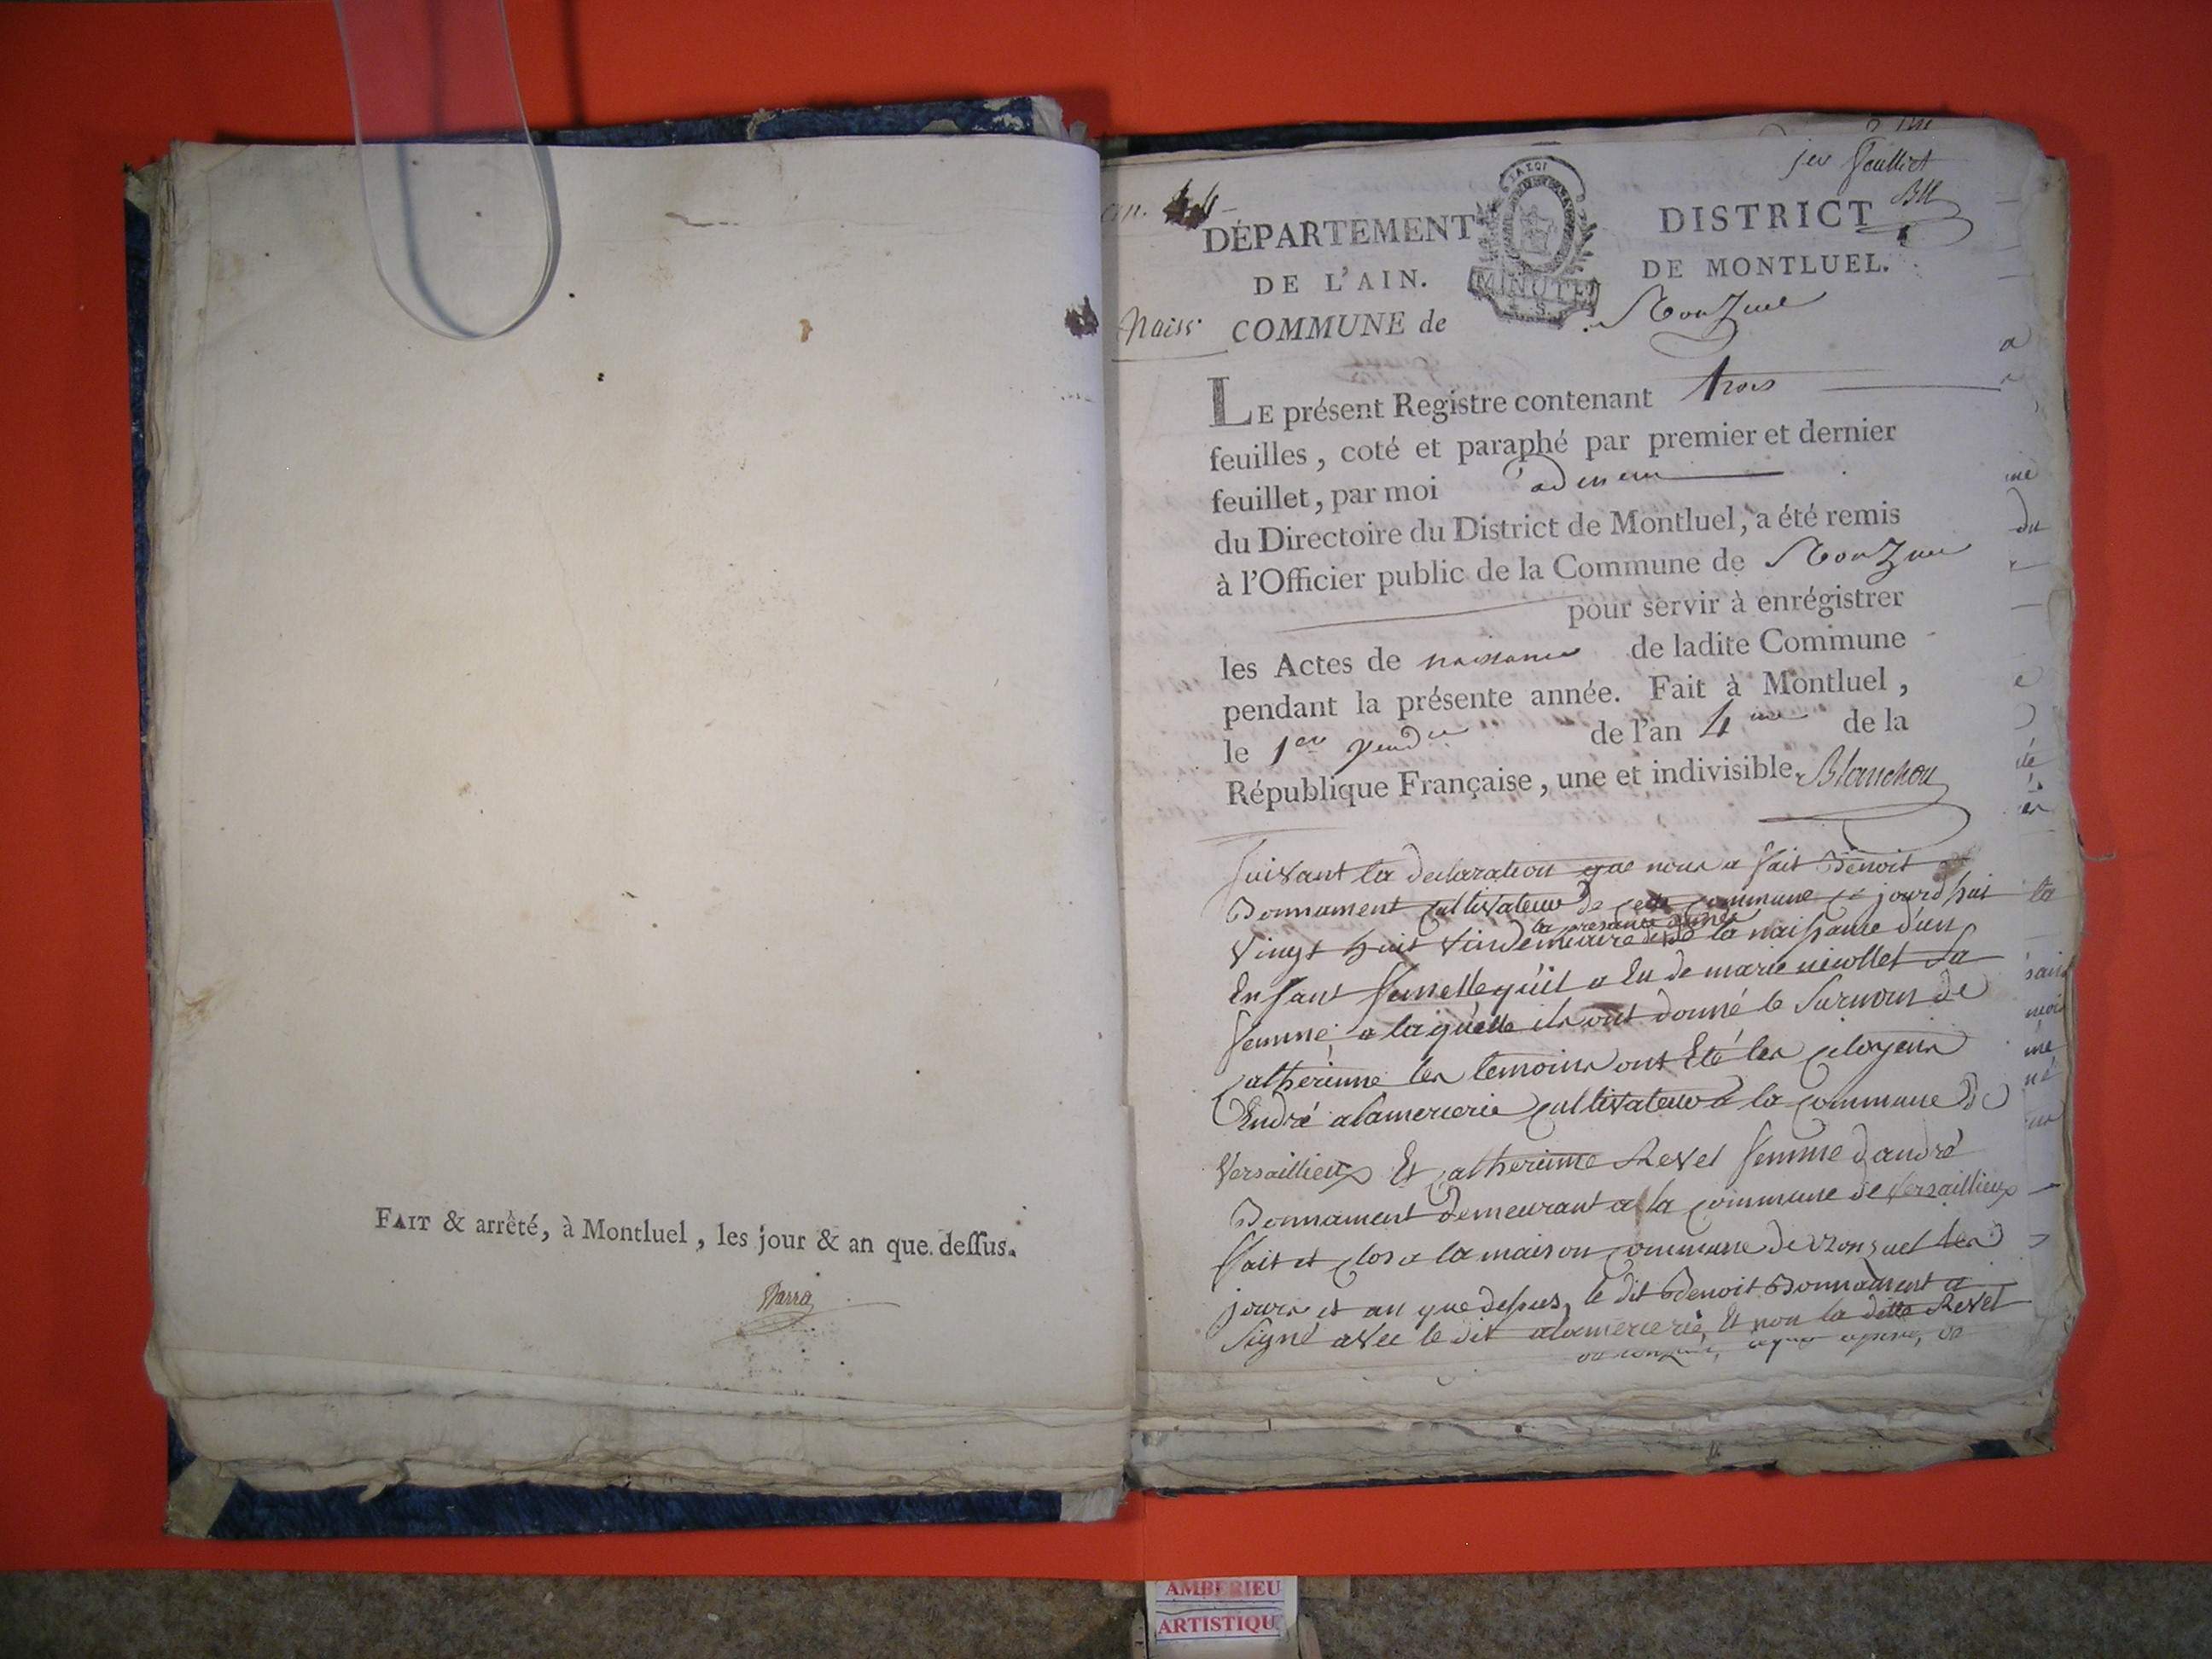 FAIT & arrêté, à Montluel, les jour & an que dessus.
Barra
an. 4
jer feuillet
BH
DÉPARTEMENT
DE L'AIN.
MINUTE
DISTRICT
DE MONTLUEL.
Naiss. COMMUNE de Ronzuel
LE présent Registre contenant trois
feuilles, coté et paraphé par premier et dernier
feuillet, par moi admeur
du Directoire du District de Montluel, a été remis
à l'Officier public de la Commune de Ronzuel
pour servir à enrégistrer
les Actes de naissance de ladite Commune
pendant la présente année. Fait à Montluel,
le 1er vendre de l'an 4me de la
République Française, une et indivisible. Blanchon
suivant la declaration que nous a fait Benoit
Bonnament cultivateur de cette commune ce jourdhui
la presante année
vingt huit vindemiaire de la naissance d'un
Enfant femelle qu'il a Eu de marie nicollet Sa
femme, a laquelle ils ont donné le Surnom de
catherinne les temoins ont Eté les citoyens
André alamercerie cultivateur a la commune de
Versaillieux Et catherinne Revel femme d'andré
Bonnament demeurant a la commune de Versaillieux
fait et clos a la maison commune de Ronzuel les
jours et an que dessus, le dit Benoit Bonnament a
signé avec le dit alamercerie, Et non la ditte Revel
AMBERIEU
ARTISTIQU